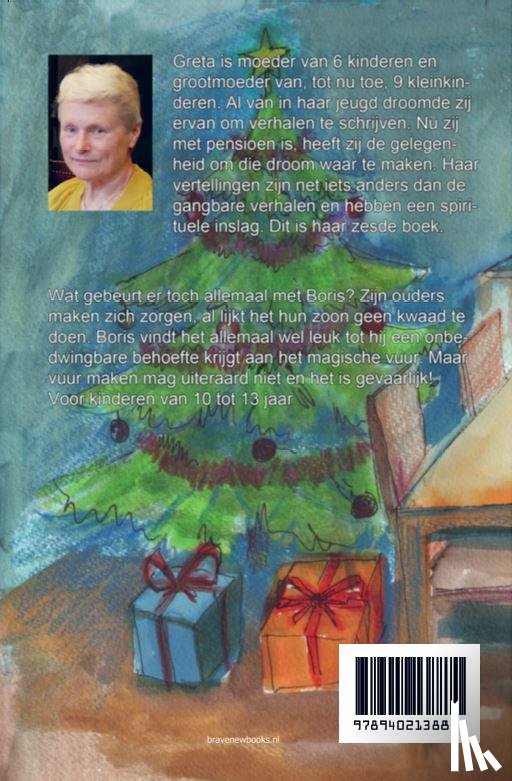 Greta is moeder van 6 kinderen en
grootmoeder van, tot nu toe, 9 kleinkin-
deren. Al van in haar jeugd droomde zij
ervan om verhalen te schrijven. Nu zij
met pensioen is, heeft zij de gelegen-
heid om die droom waar te maken. Haar
vertellingen zijn net iets anders dan de
gangbare verhalen en hebben een spiri-
tuele inslag. Dit is haar zesde boek.
Wat gebeurt er toch allemaal met Boris? Zijn ouders
maken zich zorgen, al lijkt het hun zoon geen kwaad te
doen. Boris vindt het allemaal wel leuk tot hij een onbe-
dwingbare behoefte krijgt aan het magische vuur. Maar
vuur maken mag uiteraard niet en het is gevaarlijk!
Voor kinderen van 10 tot 13 jaar
97894021388
bravenewbooks.nl